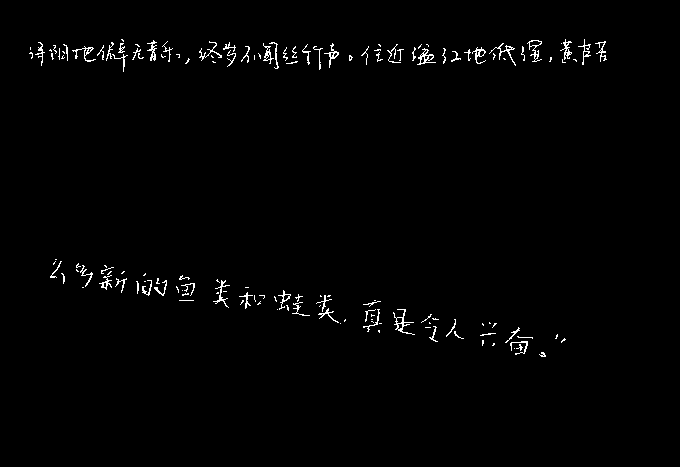 浔阳地僻无音乐，终岁不闻丝竹声。住近湓江地低湿，黄芦苦
么多新的鱼类和蛙类，真是令人兴奋。”